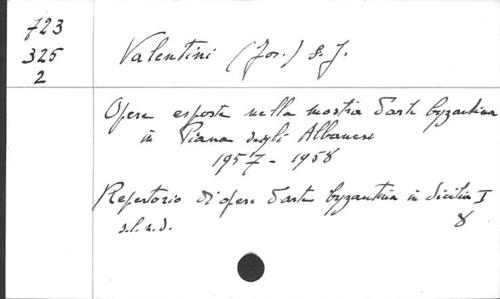 723
325
2
Valentini (Jos.) S. J.
Opere esposte nella mostra d'arte byzantina
in Piana degli Albanesi
1957 - 1958
Repertorio di opere d'arte byzantina in Sicilia I
s.l.n.d.
8